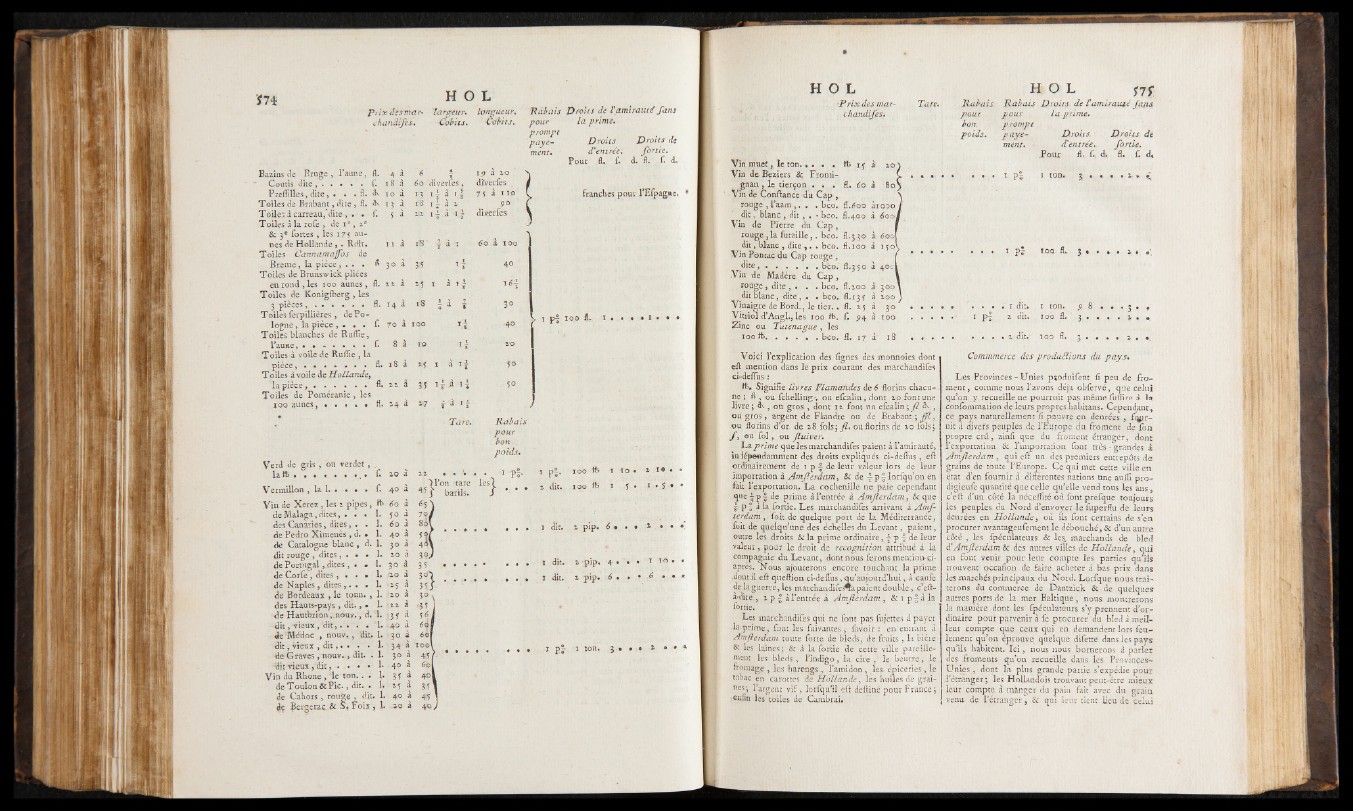 574
H O L
Prix des mar- largeur. longueur. Rabais Droits de l'amirauté sans
chandises. Cobits. Cobits. pour la prime.
prompt
paye- Droits Droits de
ment. d'entrée. sortie.
Pour fl. s. d. fl. s. d.
Bazins de Bruge, l'aune, fl. 4 à 6 19 à 20
Coutis dite, . . . . . s. 18 à 60 diverses, diverses
Pressilles, dite, . . . fl. 10 à 13 75 à 110 franches pour l'Espagne.
Toiles de Brabant, dite, fl. 13 à 18 1½ à 2 90
Toiles à carreau, dite, . . s. 5 à 22 diverses
Toiles à la rose, de 1e, 2e
& 3e sortes, les 175 au-
nes de Hollande, . Rdlt. 11 à 18 60 à 100
Toiles Cannamassos de
Breme, la pièce, . . . 30 à 35 40
Toiles de Brunswick pliées
en rond, les 100 aunes, fl. 22 à 25
Toiles de Konigsberg, les
3 pièces, . . . . . . . fl. 14 à 18 30
Toiles serpillières, de Po-
logne, la pièce, . . . s. 70 à 100 40
Toiles blanches de Russie,
l'aune, . . . . . . . s. 8 à 10 20
Toiles à voile de Russie, la
pièce, . . . . . . . fl. 18 à 25 50
Toiles à voile de Hollande,
la pièce, . . . . . . fl. 22 à 35 50
Toiles de Poméranie, les
100 aunes, . . . . . fl. 24 à 27
1 p 100 fl. 1 . . . . 1 . . .
Tare. Rabais
pour
bon
poids.
Verd de gris, ou verdet,
la lb . . . . . . . . . s. 20 à 22 . . . . . . 1 p. 1 p. 100 lb 1 10 . 2 10 . .
Vermillon, la l. . . . . s. 40 à 45 l'on tare les barils. . . . 2 dit. 100 lb 1 5 . 1 . 5 . .
Vin de Xerez, les 2 pipes, lb 60 à 65
de Malaga, dites, . . . l. 50 à 70
des Canaries, dites, . . l. 60 à 80
de Pedro Ximenès, d. . l. 40 à 50
de Catalogne blanc, d. l. 30 à 40
dit rouge, dites, . . . l. 20 à 30
. . . . . 1 dit. 2 pip. 6 . . . 2 . . .
de Portugal, dites, . . l. 30 à 35 . . . . . 1 dit. 2 pip. 4 . . . 1 10 . .
de Corse, dites, . . . l. 20 à 30
de Naples, dites, . . . l. 25 à 35
. . . . . 1 dit. 2 pip. 6 . . . 6 . . .
de Bordeaux, le tonn., l. 20 à 30
des Hauts-pays, dit., . l. 22 à 35
de Hautbrion, nouv., d. l. 35 à 56
dit, vieux, dit, . . . . l. 40 à 60
de Médoc, nouv., dit. l. 30 à 60
dit, vieux, dit, . . . . l. 34 à 100
de Graves, nouv., dit. . l. 30 à 45
dit vieux, dit, . . . . . l. 40 à 60
Vin du Rhone, le ton. . . l. 35 à 40
de Toulon & Pic., dit. . l. 25 à 35
de Cahors, rouge, dit. l. 40 à 45
de Bergerac & S. Foix, l. 20 à 40
. . . . . 1 p 1 ton. 3 . . . 2 . . .
H O L
Prix des mar- Tare.
chandises.
H O L 575
Rabais Rabais Droits de l'amirauté sans
pour pour la prime.
bon prompt
poids. paye- Droits Droits de
ment. d'entrée. sortie.
Pour fl. s. d. fl. s. d.
Vin muet, le ton. . . . . lb 15 à 20
Vin de Beziers & Fronti-
gnan, le tierçon . . . fl. 60 à 80
. . . . . 1 p 1 ton. 3 . . . . 2 . .
Vin de Constance du Cap,
rouge, l'aam, . . . bco. fl.600 à 1000
dit, blanc, dit, . . bco. fl.400 à 600
Vin de Pierre du Cap,
rouge, la futaille, . bco. fl.330 à 600
dit, blanc, dite, . . bco. fl.100 à 150
Vin Pontac du Cap rouge,
dite, . . . . . . bco. fl.350 à 400
Vin de Madère du Cap,
rouge, dite, . . . bco. fl.200 à 300
dit blanc, dite, . . bco. fl.135 à 200
. . . . . 1 p 100 fl. 3 . . . . 2 . .
Vinaigre de Bord., le tier. . fl. 25 à 30 . . . . . 1 dit. 1 ton. 9 8 . . . 3 . .
Vitriol d'Angl., les 100 lb. s. 94 à 100 . . . . . 1 p 2 dit. 100 fl. 3 . . . . 2 . .
Zinc ou Tutenague, les
100 lb. . . . . . bco. fl. 17 à 18 . . . . . 2 dit. 100 fl. 3 . . . . 2 . .
Voici l'explication des signes des monnoies dont
est mention dans le prix courant des marchandises
ci-dessus :
lb. Signifie livres Flamandes de 6 florins chacu-
ne ; ou schelling, ou escalin, dont 20 font une
livre ; ou gros, dont 12 font un escalin ; fl ,
ou gros, argent de Flandre ou de Brabant ; fl,
ou florins d'or de 28 sols ; fl. ou florins de 20 sols ;
s, ou sol, ou stuiver.
La prime que les marchandises paient à l'amirauté,
indépendamment des droits expliqués ci-dessus, est
ordinairement de 1 p de leur valeur lors de leur
importation à Amsterdam, & de p lorsqu'on en
fait l'exportation. La cochenille ne paie cependant
que p de prime à l'entrée à Amsterdam, & que
p à la sortie. Les marchandises arrivant à Ams-
terdam, soit de quelque port de la Méditerranée,
soit de quelqu'une des échelles du Levant, paient,
outre les droits & la prime ordinaire, p de leur
valeur, pour le droit de recognition attribué à la
compagnie du Levant, dont nous ferons mention ci-
après. Nous ajouterons encore touchant la prime
dont il est question ci-dessus, qu'aujourd'hui, à cause
de la guerre, les marchandises la paient double, c'est-
à-dire, 2 p à l'entrée à Amsterdam, & 1 p à la
sortie.
Les marchandises qui ne sont pas sujettes à payer
la prime, sont les suivantes, savoir : en entrant à
Amsterdam toute sorte de bleds, de fruits, la bière
& les laines ; & à la sortie de cette ville pareille-
ment les bleds, l'indigo, la cire, le beurre, le
fromage, les harengs, l'amidon, les épiceries, le
tabac en carottes de Hollande, les huiles de grai-
nes, l'argent vif, lorsqu'il est destiné pour France ;
enfin les toiles de Cambrai.
Commerce des productions du pays.
Les Provinces-Unies produisent si peu de fro-
ment, comme nous l'avons déja observé, que celui
qu'on y recueille ne pourroit pas même suffire à la
consommation de leurs propres habitans. Cependant,
ce pays naturellement si pauvre en denrées, four-
nit à divers peuples de l'Europe du froment de son
propre crû, ainsi que du froment étranger, dont
l'exportation & l'importation sont très-grandes à
Amsterdam, qui est un des premiers entrepôts de
grains de toute l'Europe. Ce qui met cette ville en
état d'en fournir à différentes nations une aussi pro-
digieuse quantité que celle qu'elle vend tous les ans,
c'est d'un côté la nécessité où sont presque toujours
les peuples du Nord d'envoyer le superflu de leurs
denrées en Hollande, où ils sont certains de s'en
procurer avantageusement le débouché, & d'un autre
côté, les spéculateurs & les marchands de bled
d'Amsterdam & des autres villes de Hollande, qui
en font venir pour leur compte les parties qu'ils
trouvent occasion de faire acheter à bas prix dans
les marchés principaux du Nord. Lorsque nous trai-
terons du commerce de Dantzick & de quelques
autres ports de la mer Baltique, nous montrerons
la manière dont les spéculateurs s'y prennent d'or-
dinaire pour parvenir à se procurer du bled à meil-
leur compte que ceux qui en demandent lors seu-
lement qu'on éprouve quelque disette dans les pays
qu'ils habitent. Ici, nous nous bornerons à parler
des fromens qu'on recueille dans les Provinces-
Unies, dont la plus grande partie s'expédie pour
l'étranger ; les Hollandois trouvant peut-être mieux
leur compte à manger du pain fait avec du grain
venu de l'étranger, & qui leur tient lieu de celui